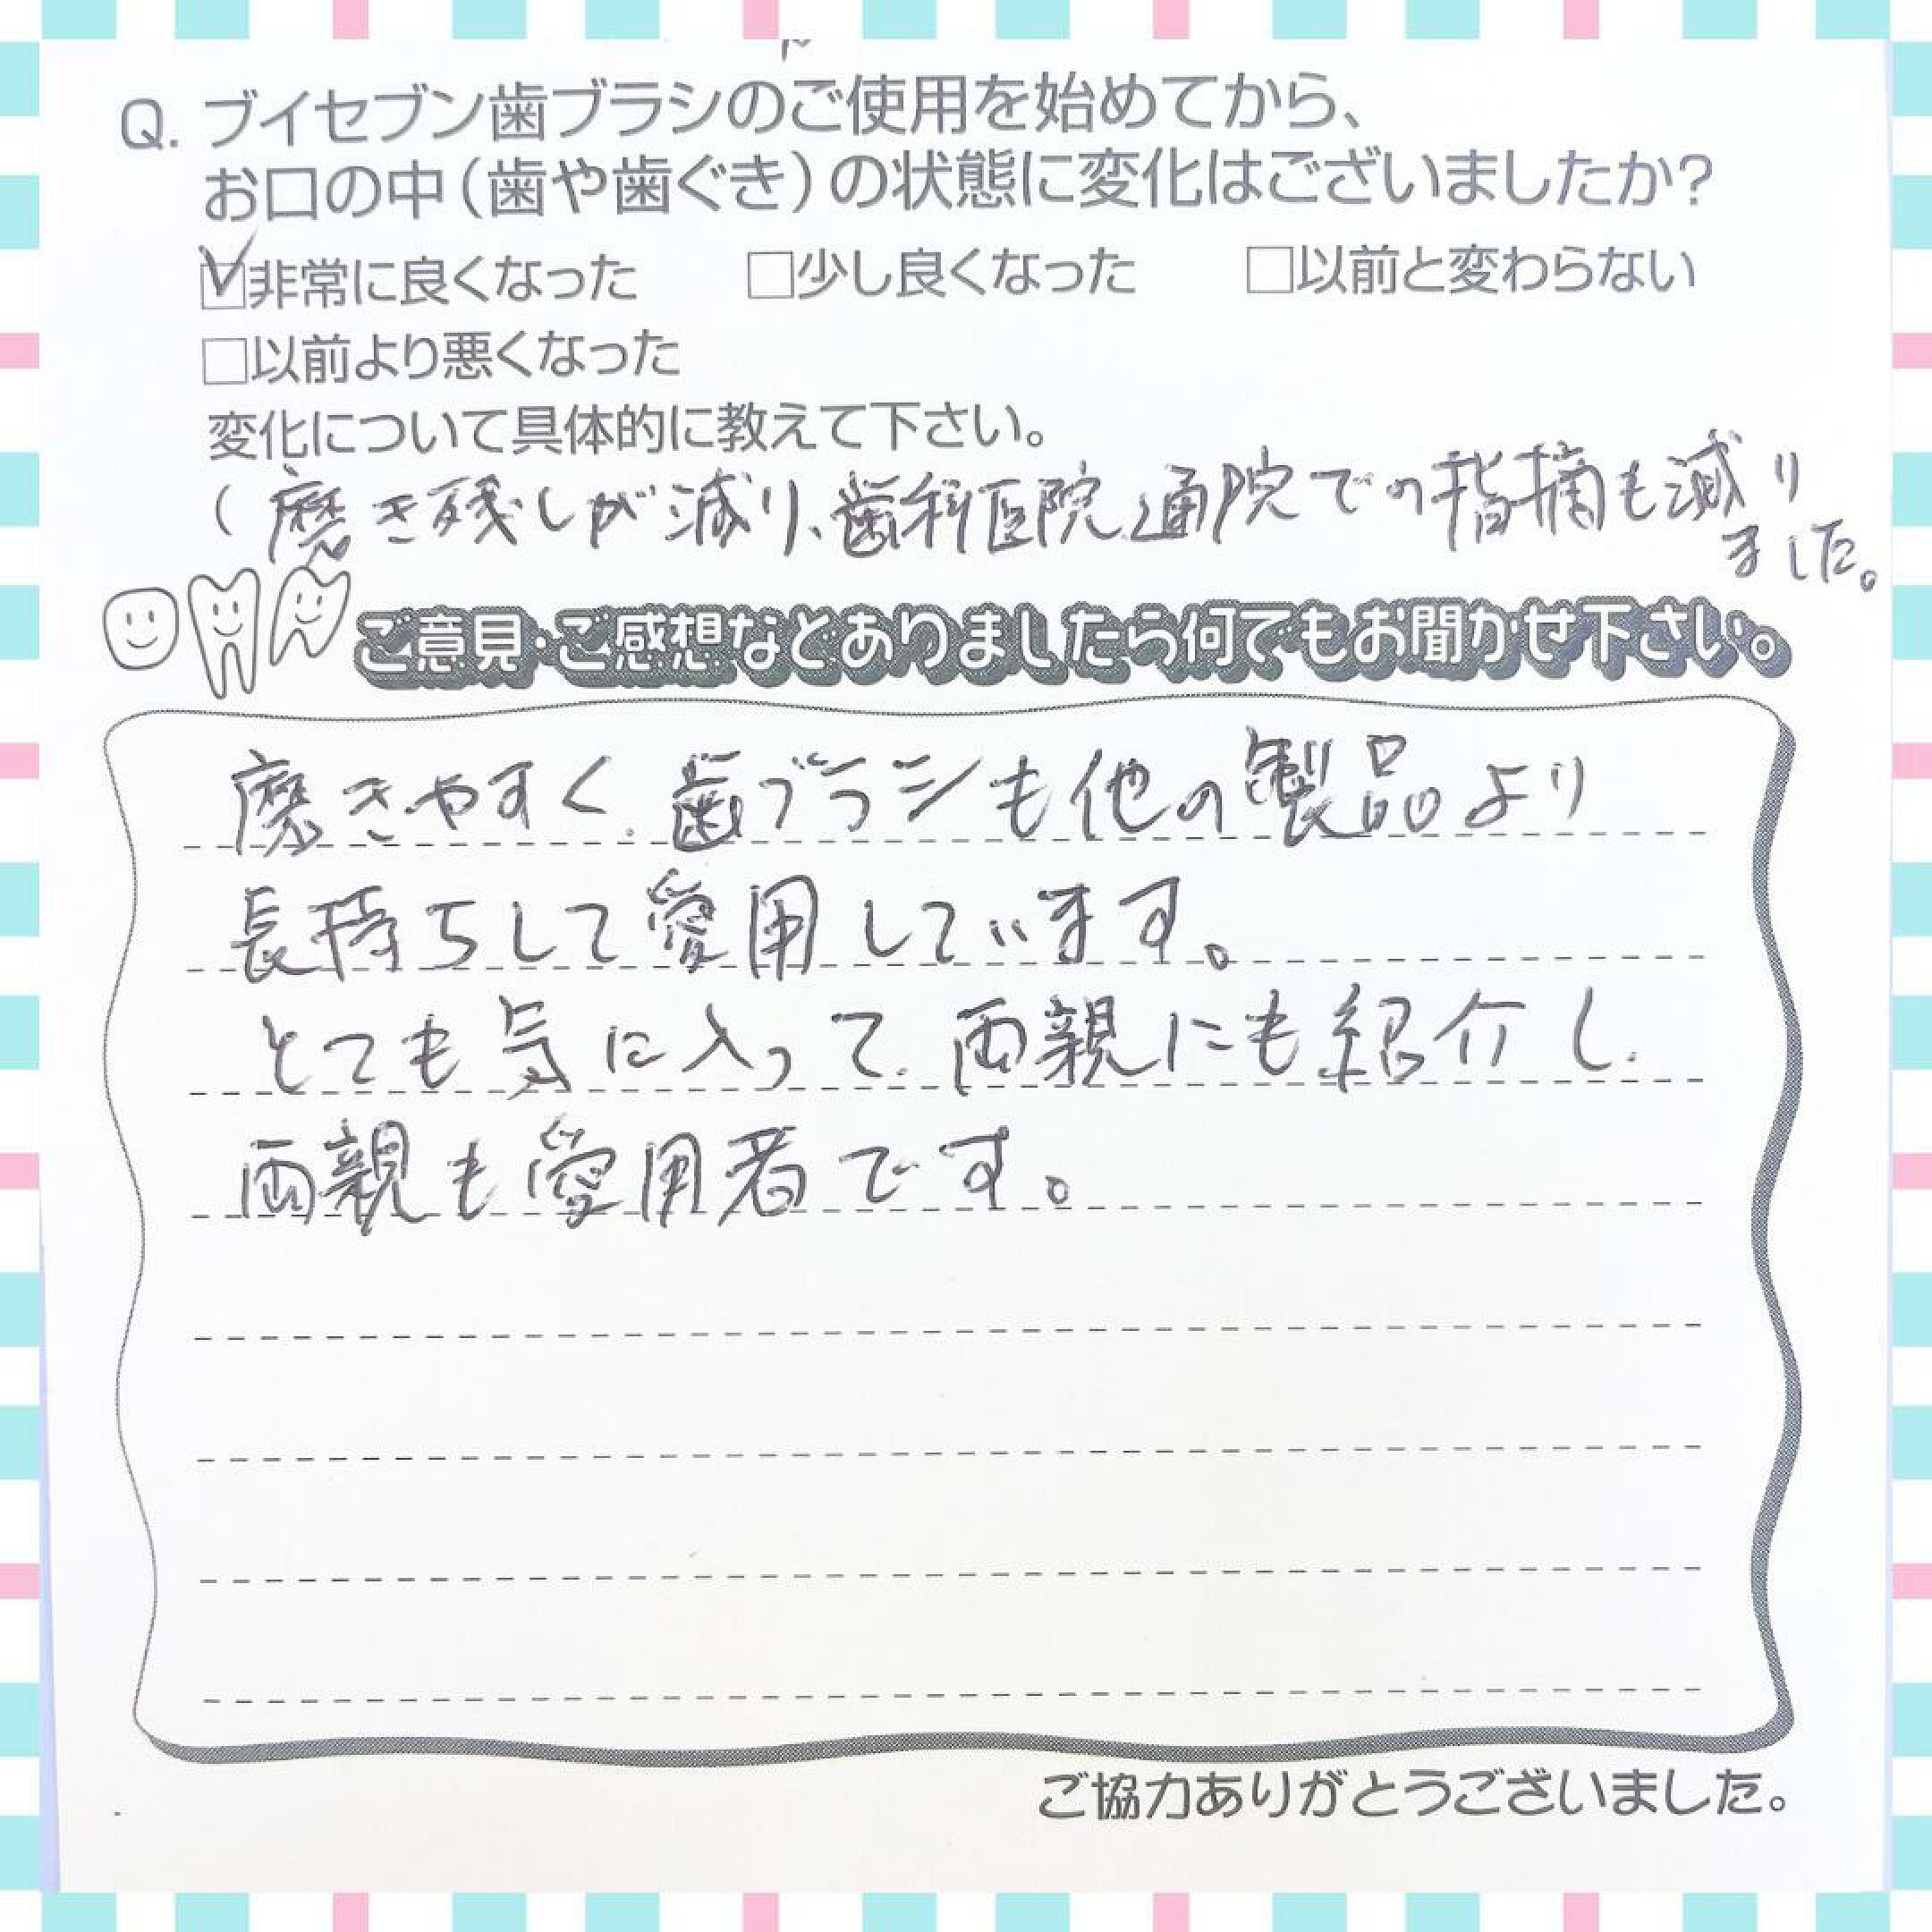 Q. ブイセブン歯ブラシのご使用を始めてから、
お口の中(歯や歯ぐき)の状態に変化はございましたか?
☑非常に良くなった □少し良くなった □以前と変わらない
□以前より悪くなった
変化について具体的に教えて下さい。
(磨き残しが減り、歯科医院通院での指摘も減り
ました。
ご意見・ご感想などありましたら何でもお聞かせ下さい。
磨きやすく、歯ブラシも他の製品より
長持ちして愛用しています。
とても気に入って、両親にも紹介し、
両親も愛用者です。
ご協力ありがとうございました。